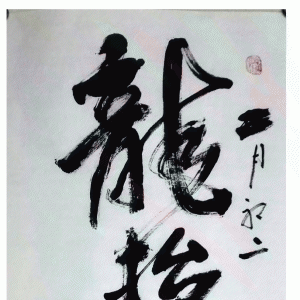 龍抬
二月初二